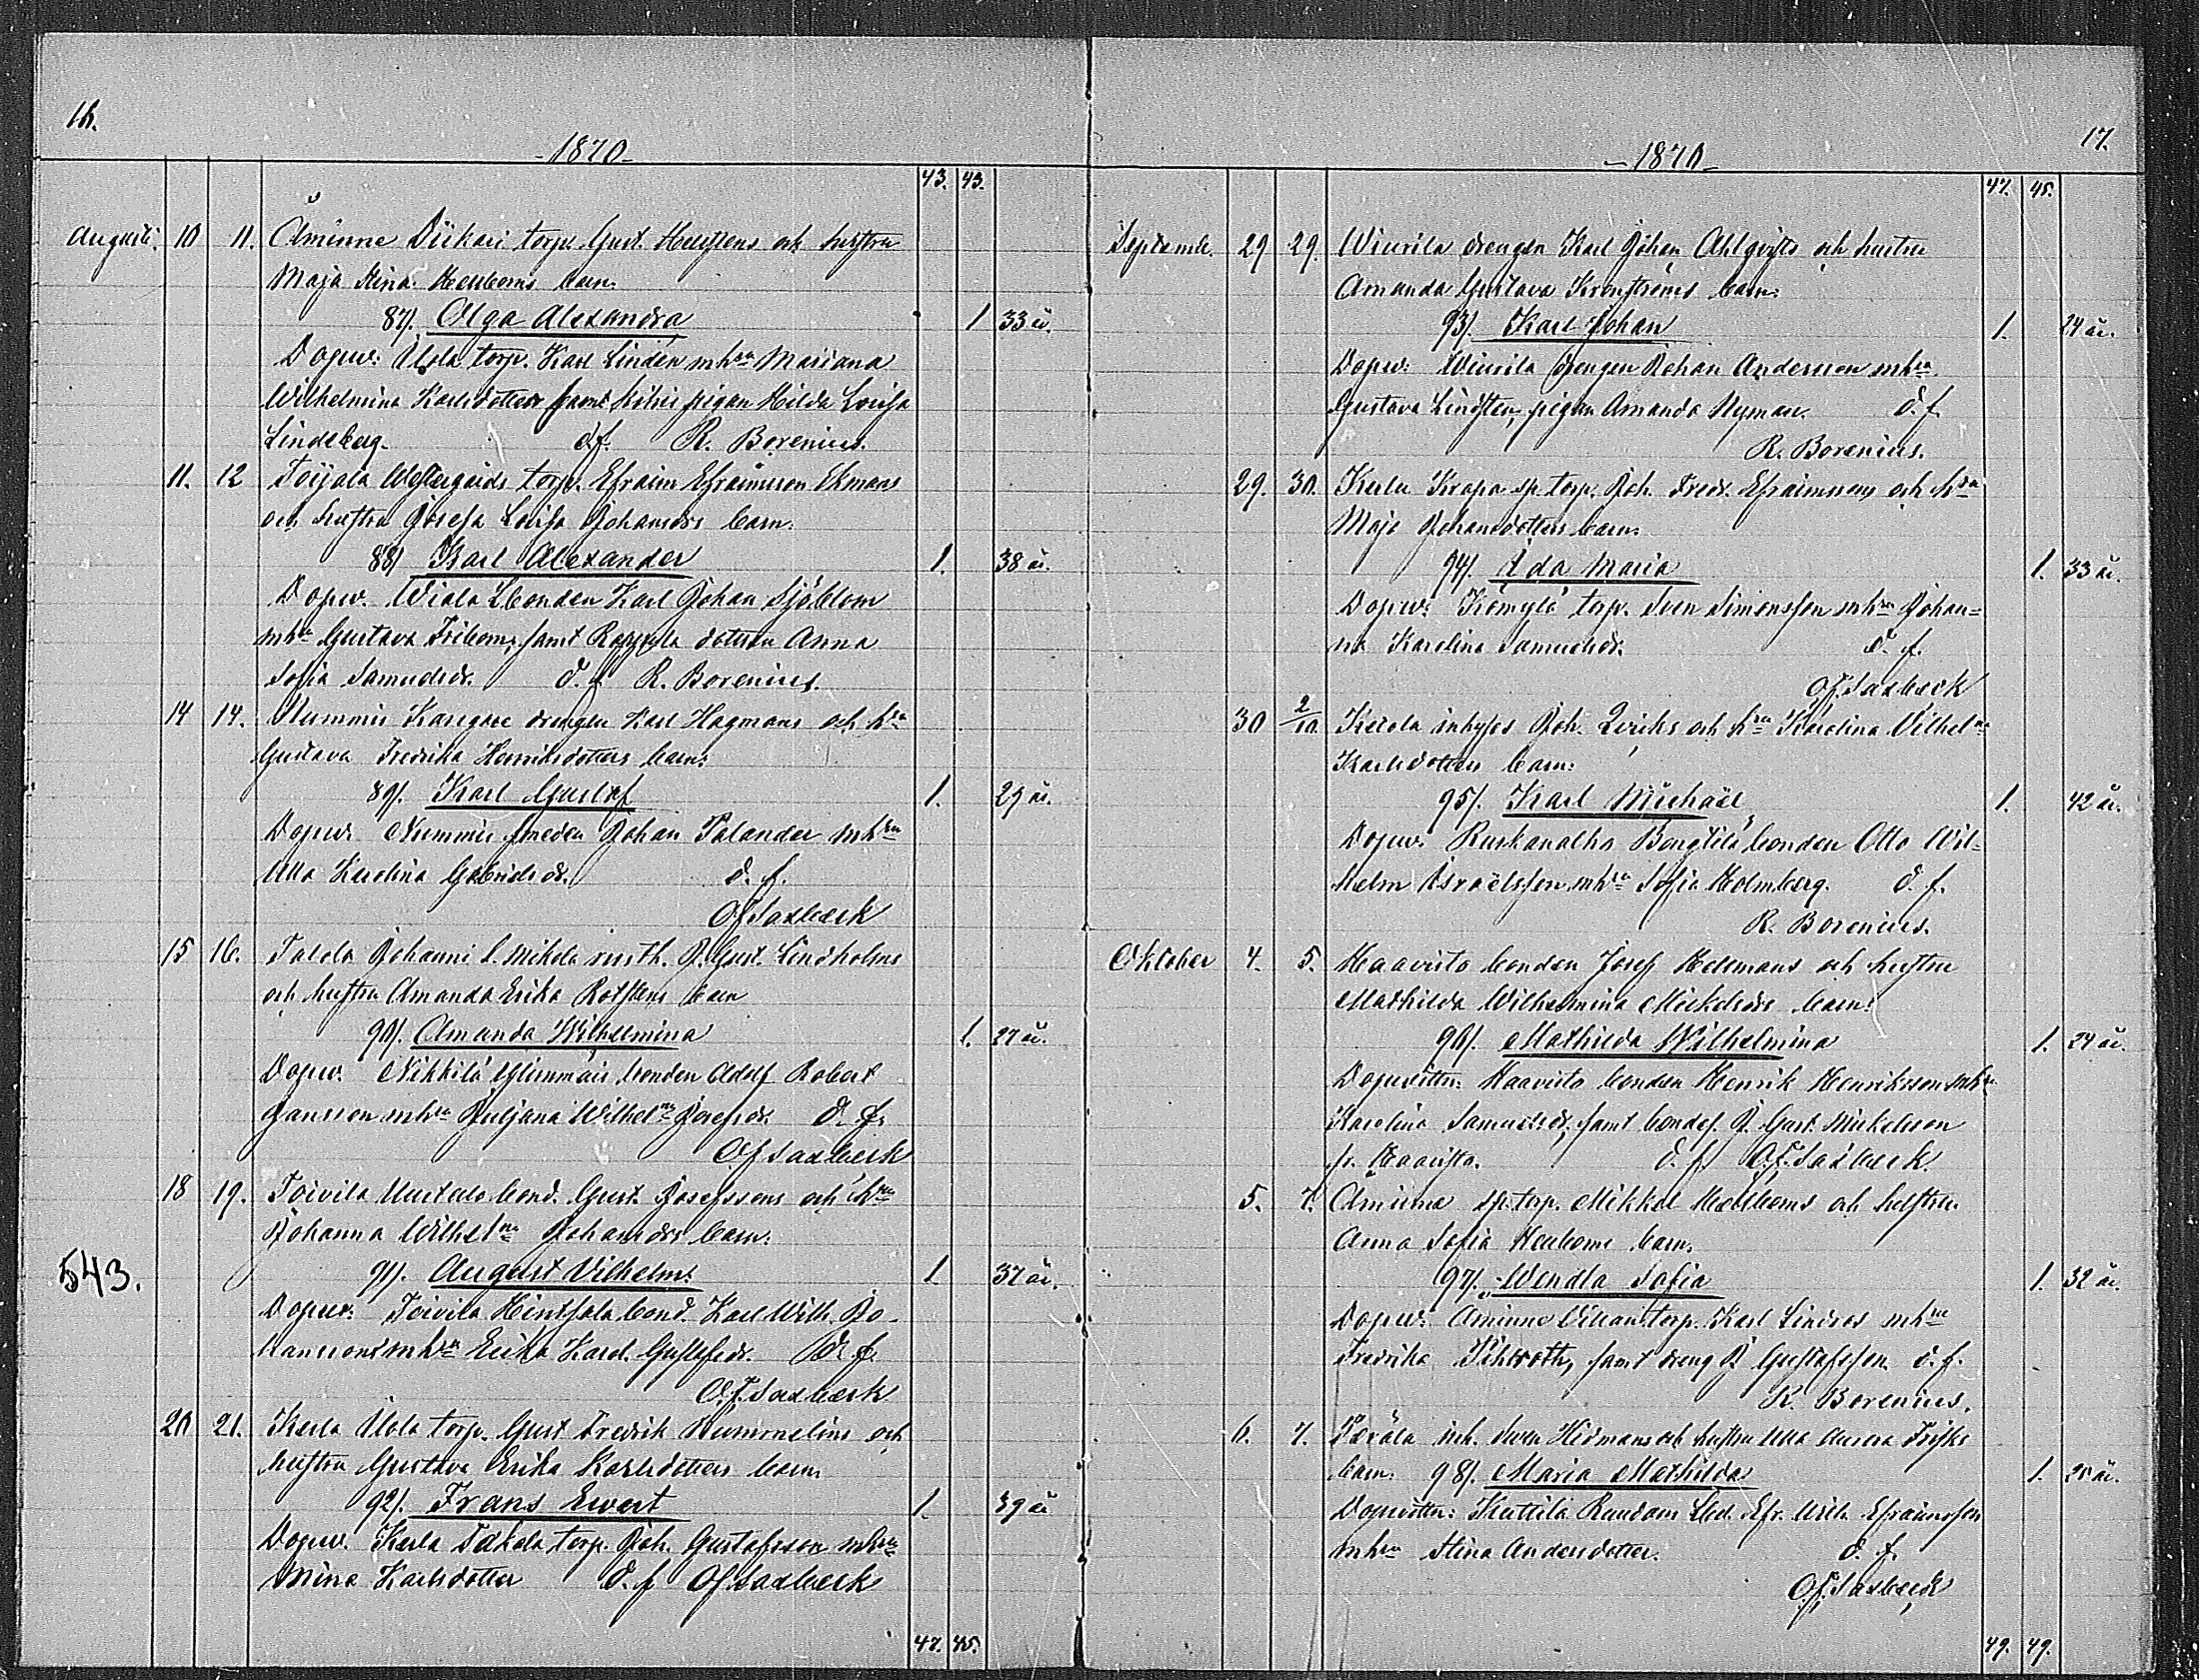 16.
-1870-
43. 43.
Augusti. 10 11. Åminne Diikari torp. Gust. Hellstens och hustru
Maja Stina Hellboms barn:
87). Olga Alexandra 1 33 år.
Dopw: Uola torp. Karl Lindén mhru Mariana
Wilhelmina Karlsdotter samt pigan Hilda Lovisa
Lindeberg. d. f. R. Borenius.
11. 12 Toijala Westergårds torp. Efraim Efraimsson Ekmans
och hustru Josefa Lovisa Johansdrs barn:
88) Karl Alexander 1. 38 år.
Dopw. Wiala Lbonden Karl Johan Sjöblom
mhru Gustava Friborn, samt dottren Anna
Sofia Samuelsdr. d. f. R. Borenius.
14 14. Nummis Karlgare drengen Karl Hagmans och hru
Gustava Fredrika Henriksdotters barn:
89). Karl Gustaf 1. 29 år.
Dopw. Nummis smeden Johan Palander mhru
Ulla Karolina Gabrielsdr. d. f.
O.F. Saxbäck
15 16. Talola Johanni l. Mikola rusth. J. Gust. Lindholms
och hustru Amanda Erika Rotstens barn
90). Amanda Wilhelmina 1. 27 år.
Dopw. Nikkilä Ylimmäis bonden Adolf Robert
Jansson mhru Juljana Wilhelna Josefsdr. d. f.
O F Saxbäck
18 19. Toivila Uustalo bond. Gust. Josefssons och hru
Johanna Wilhelna Johansdrs barn:
543.
91). August Vilhelm. 1. 37 år.
Dopw. Toivila Hintsala bond. Karl Wilh. Jo-
hansons mhru Erika Karol. Gustafsdr. d. f.
O.F. Saxbäck
20 21. Karla Uola torp. Gust Fredrik Nummelins och
hustru Gustava Erika Karlsdotters barn
92). Frans Ewert 1. 39 år
Dopw. Karla Takala torp. Joh. Gustafsson mhru
Mina Karlsdotter d. f O F Saxbäck
47. 45.
17.
-1870-
47. 45.
Septemb. 29 29. Wiurila drengen Karl Johan Ahlqvists och hustru
Amanda Gustava Kronströms barn:
93). Karl Johan 1. 24 år.
Dopw: Wiurila drengen Johan Andersson mhru
Gustava Lindsten, pigan Amanda Nyman. d. f.
R. Borenius.
29. 30. Karla Krapa sp. torp. Joh. Fredr. Efraimsons och hru
Maja Johansdotters barn:
94). Ida Maria 1. 33 år.
Dopw: torp. Sven Simonsson mhru Johan=
na Karolina Samuelsdr. d. f.
O.F. Saxbäck
30 2/10. Ketola inhyses Joh. Qvicks och hru Karolina Vilhelna
Karlsdotters barn:
95). Karl Michaël 1. 42 år.
Dopw. Ruskanalho Bengtilä bonden Otto Wil-
helm Israëlsson mhru Sofia Holmberg. d. f.
R. Borenius.
Oktober 4. 5. Haavisto bonden Josef Hellmans och hustru
Mathilda Wilhelmina Mickelsdrs barn:
96). Mathilda Wilhelmina 1. 24 år.
Dopvittn: Haavisto bonden Henrik Henriksson mhru
Karolina Samuelsdr. samt bondes. J. Gust. Mickelsson
fr. Haavisto. d. f. O.F. Saxbäck.
5. 7. Åminne sp. torp. Mikkel Hellboms och hustru
Anna Sofia Hellboms barn:
97). Wendla Sofia 1. 32 år.
Dopw: Åminne torp. Karl Lindros mhru
Fredrika Pihlroth, samt dreng J. Gustafsson. d. f.
R. Borenius.
6. 7. Peräla inh. Sven Hidmans och hustru Ulla Aurora Frisks
barn. 98). Maria Mathilda 1. år.
Dopvittn: Kuttila Raudam Lbd. Efr. Wilh. Efraimsson
mhru Stina Andersdotter. d. f.
O.F. Saxbäck
49. 49.